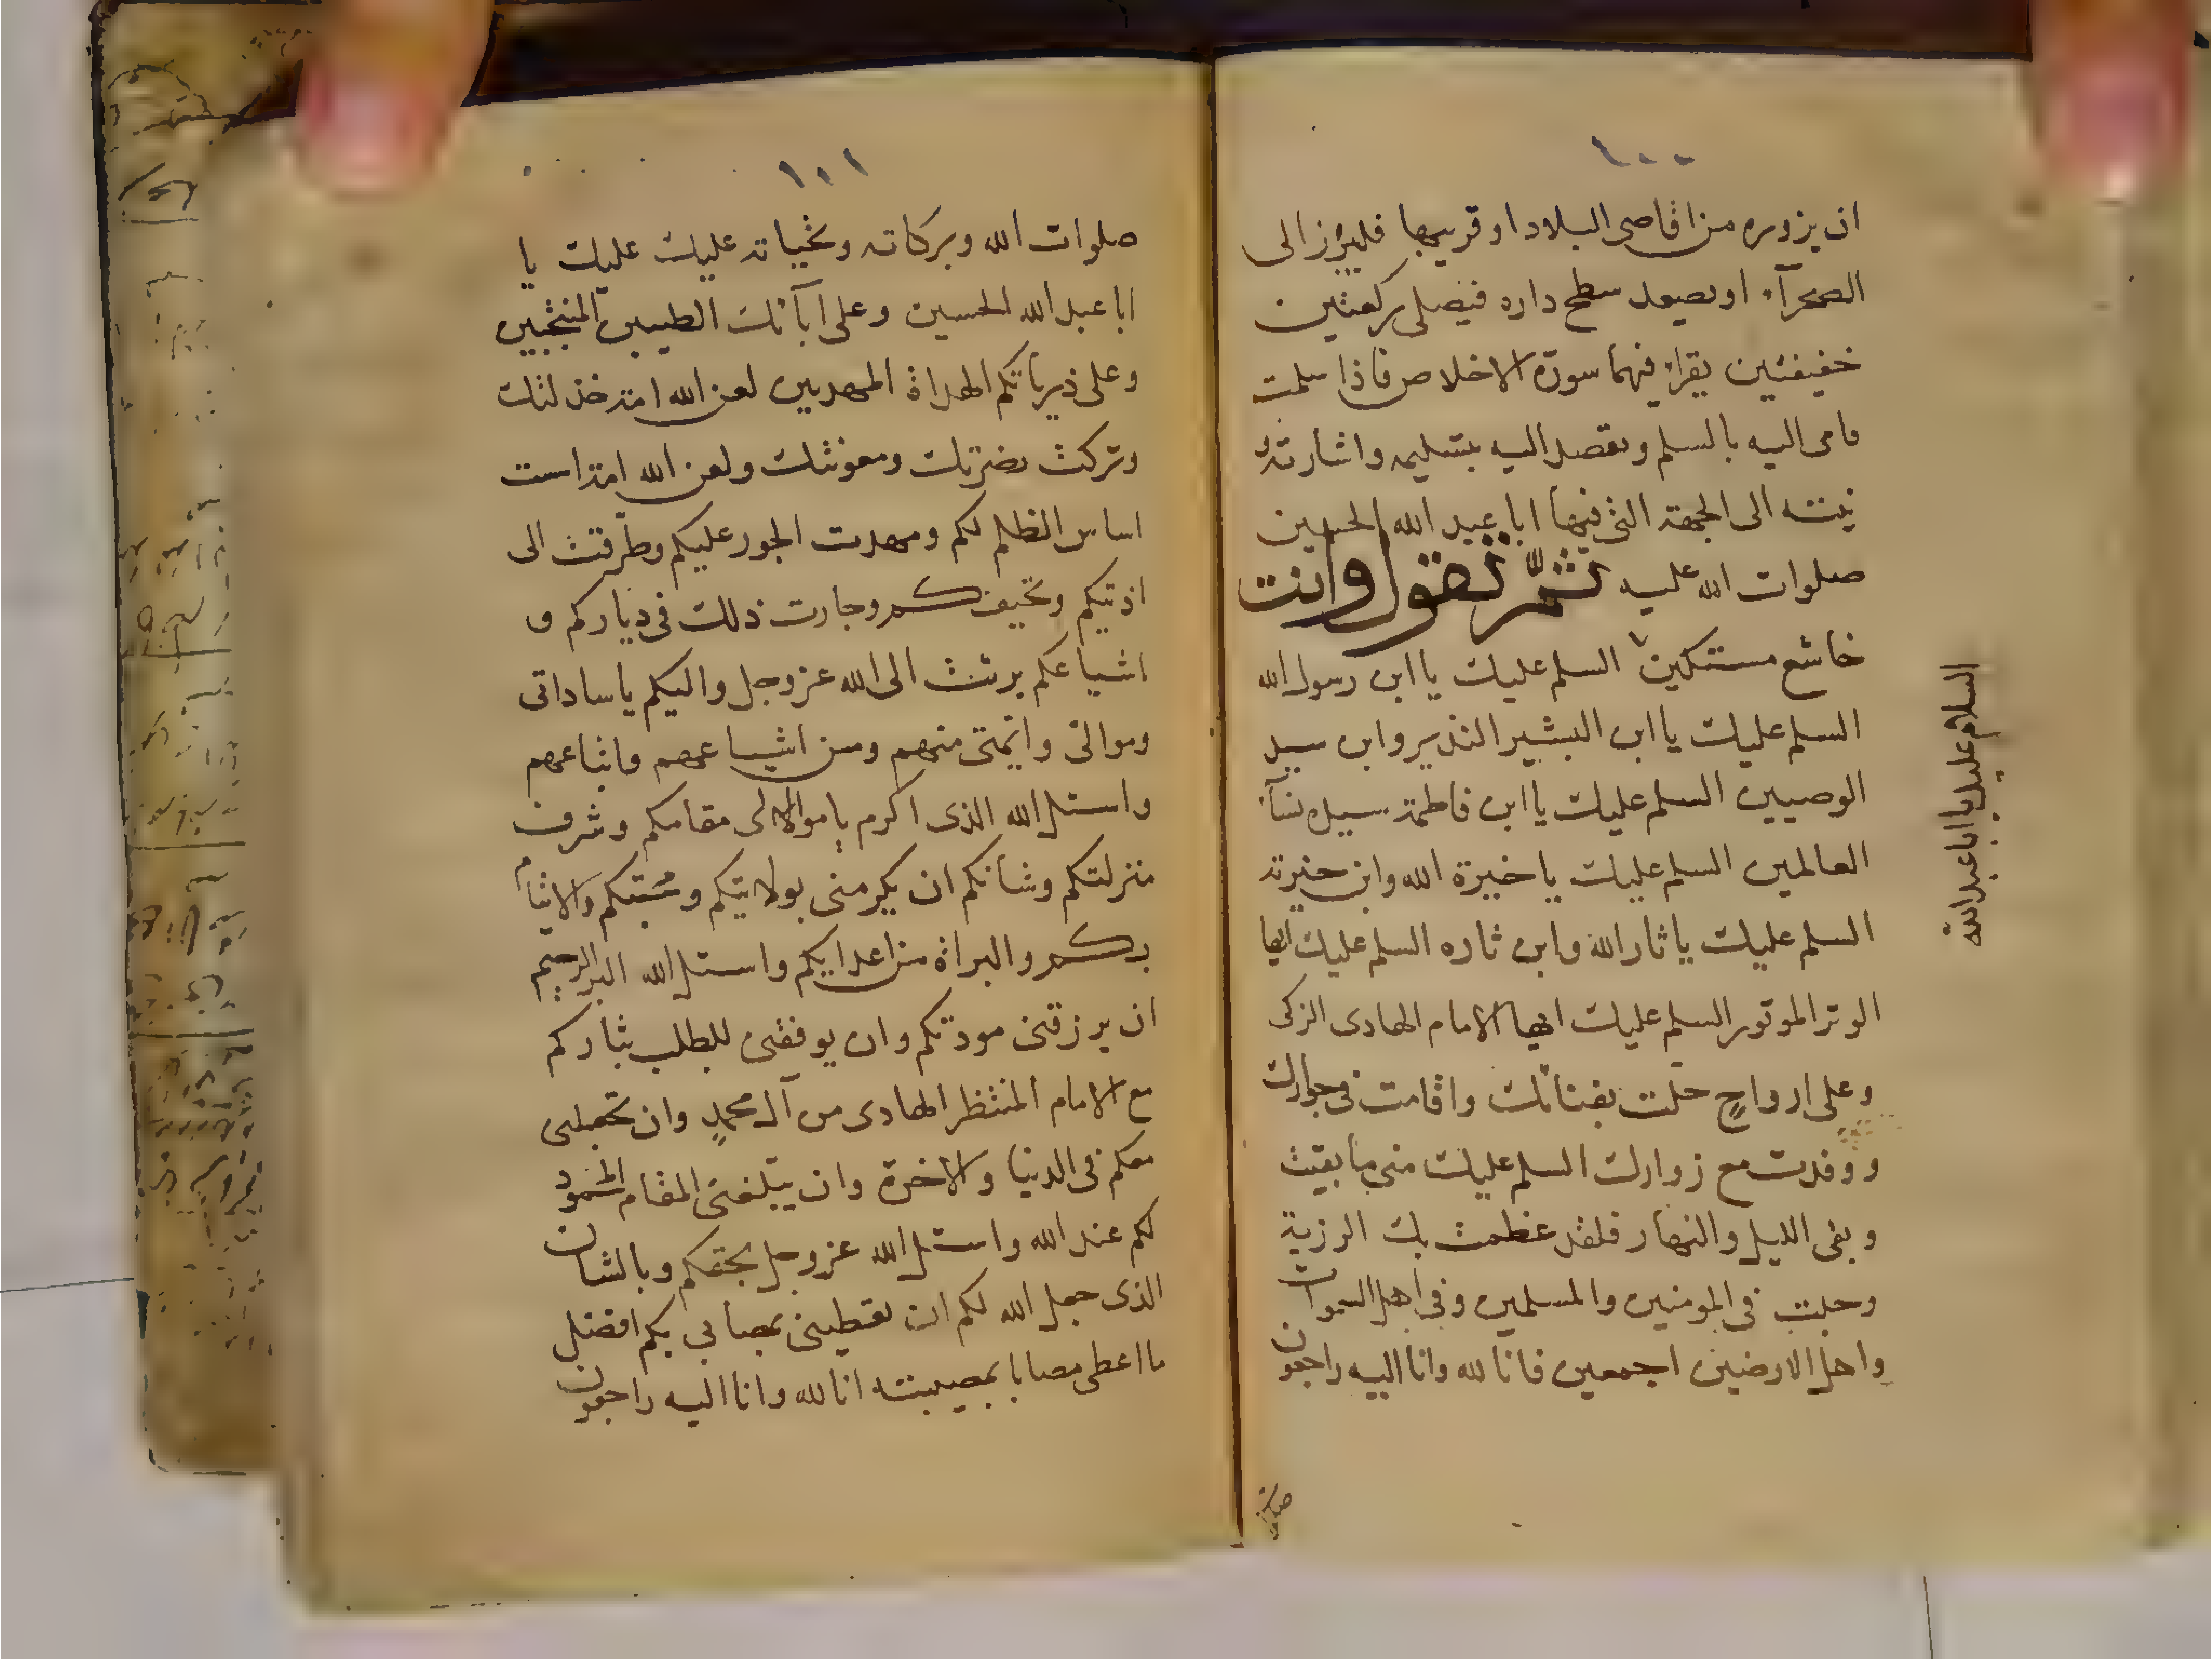 ١٠٠
ان يزوره من اقاصى البلاد او قريبها فليبرز الى
الصحرآء او يصعد سطح داره فيصلى ركعتين
خفيفتين يقراء فيهما سورة الاخلاص فاذا سلمت
فامى اليه بالسلم و يقصد اليه بتسليمه واشارته و
نيته الى الجهة التى فيها ابا عبد الله الحسين
صلوات الله عليه ثمّ تقول وانت
خاشع مستكين السلم عليك يا ابن رسول الله
السلم عليك يا ابن البشير النذير وابن سيد
الوصيين السلم عليك يا ابن فاطمة سيده نسآء
العالمين السلم عليك يا خيرة الله وابن خيرته
السلم عليك يا ثار الله وابن ثاره السلم عليك ايها
الوتر الموتور السلم عليك ايها الامام الهادى الزكى
وعلى ارواحٍ حلت بفنائك واقامت فى جوارك
ووفدت مع زوارك السلم عليك منى ما بقيت
وبقى الليل والنهار فلقد عظمت بك الرزية
وجلت فى المومنين والمسلمين وفى اهل السموات
واهل الارضين اجمعين فانا لله وانا اليه راجعون
السلام عليك يا ابا عبد الله
صلوات
١٠١
صلوات الله وبركاته وتحياته عليك عليك يا
ابا عبد الله الحسين وعلى آبائك الطيبين المنتجبين
وعلى ذيرياتكم الهداة المهديين لعن الله امة خذلتك
وتركت نضرتك ومعونتك ولعن الله امة است
اساس الظلم لكم ومهدت الجور عليكم وطرقت الى
اذيتكم وتحيفكم وجارت ذلك فى دياركم و
اشياعكم برئت الى الله عز وجل واليكم يا ساداتى
وموالى وائمتى منهم ومن اشياعهم واتباعهم
واسئل الله الذى اكرم يا موالى مقامكم وشرف
منزلتكم وشانكم ان يكرمنى بولايتكم ومحبتكم والايتمام
بكم والبراة من اعدايكم واسئل الله البر الرحيم
ان يرزقنى مودتكم وان يوفقنى للطلب بثاركم
مع الامام المنتظر الهادى من آل محمدٍ وان تجعلنى
معكم فى الدنيا والاخرة وان يبلغنى المقام المحمود
لكم عند الله واسئل الله عز وجل بحقكم وبالشان
الذى جعل الله لكم ان تعطينى بمصابى بكم افضل
ما اعطى مصابا بمصيبته انا لله وانا اليه راجعون